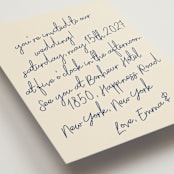 you're invited to our
wedding!
saturday, may 15th, 2027
at five o'clock in the afternoon
See you at Bonheur Hotel
1850, Happiness Road
New York, New York
Love, Emma &